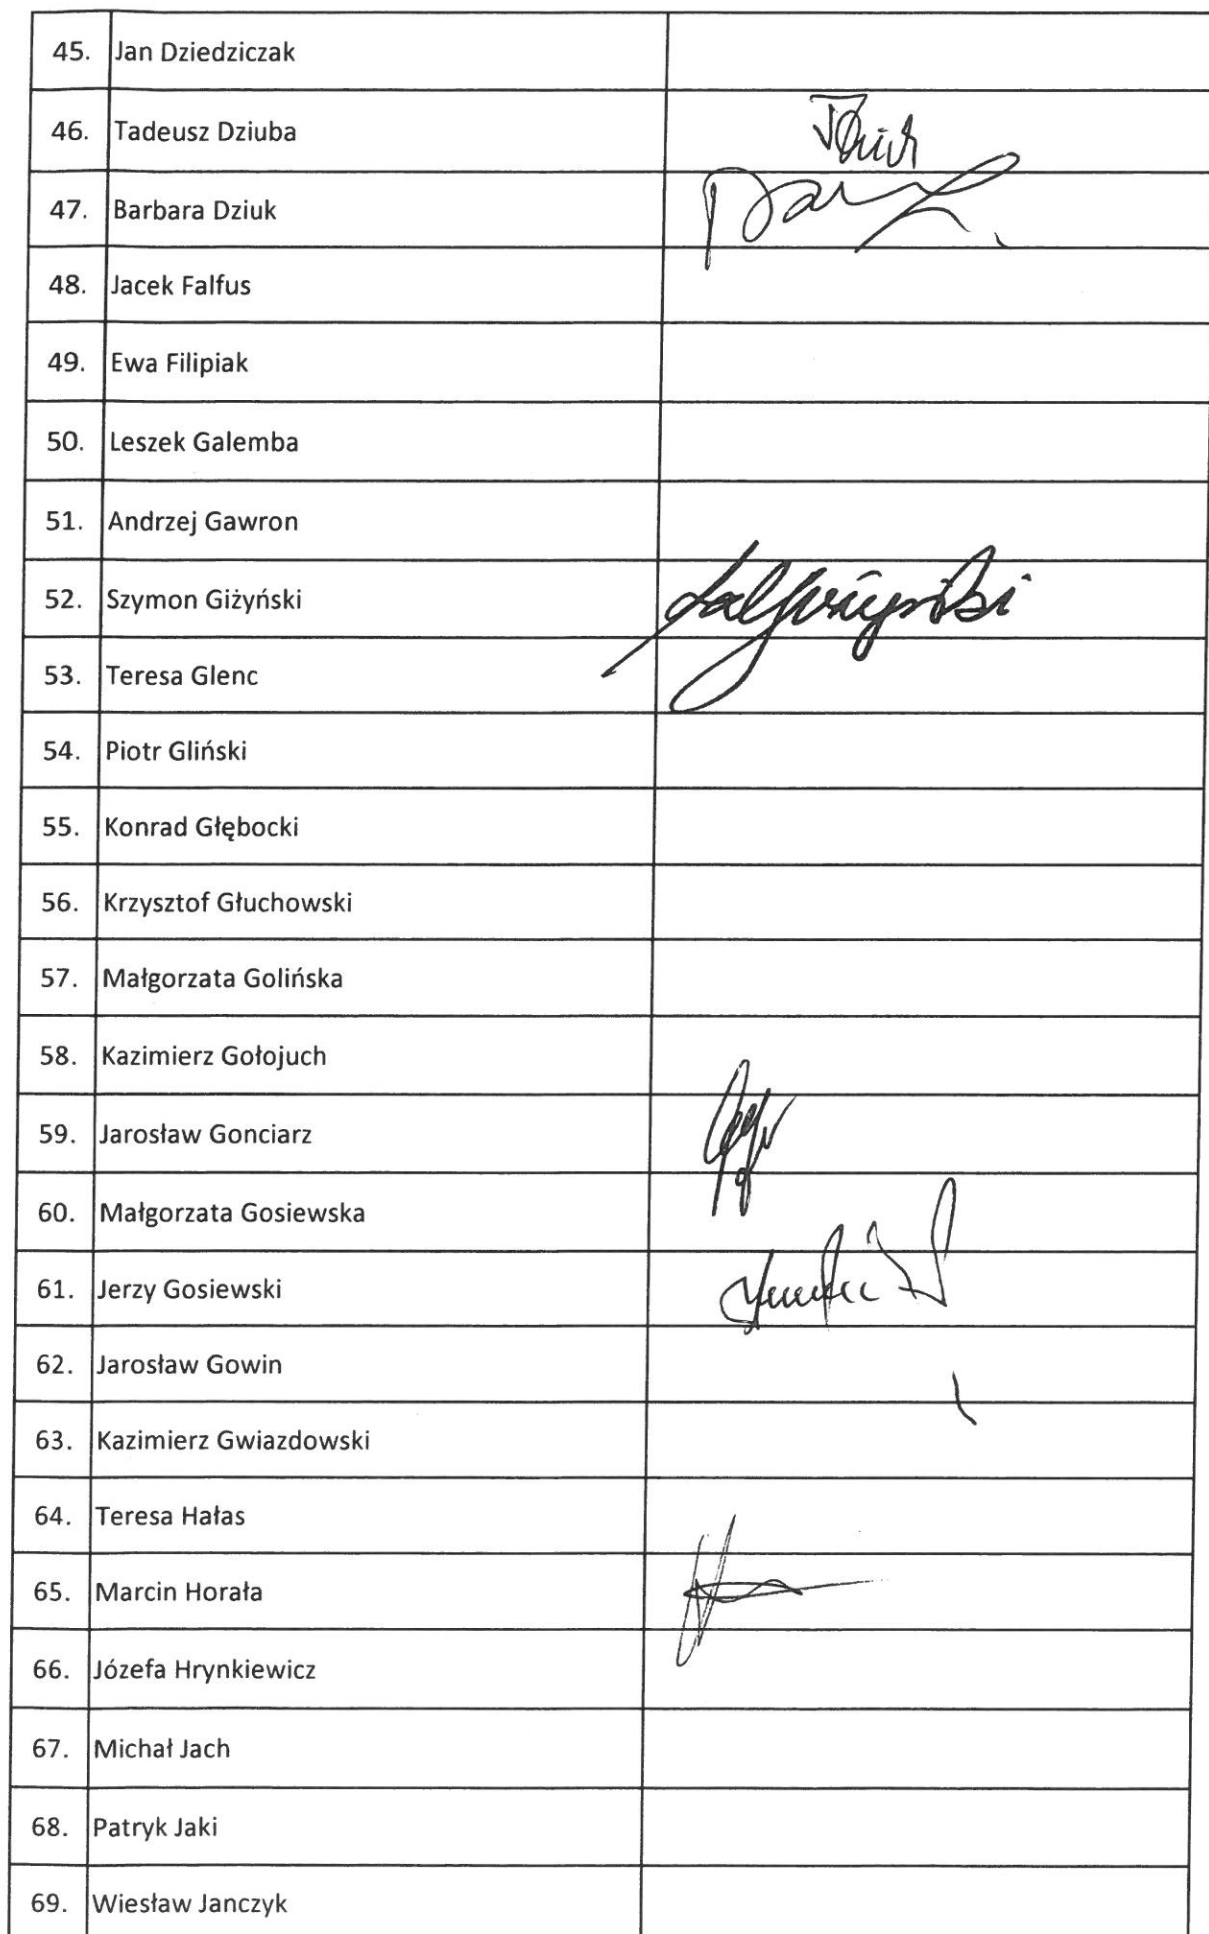 45. Jan Dziedziczak
46. Tadeusz Dziuba
47. Barbara Dziuk
48. Jacek Falfus
49. Ewa Filipiak
50. Leszek Galemba
51. Andrzej Gawron
52. Szymon Giżyński
53. Teresa Glenc
54. Piotr Gliński
55. Konrad Głębocki
56. Krzysztof Głuchowski
57. Małgorzata Golińska
58. Kazimierz Gołojuch
59. Jarosław Gonciarz
60. Małgorzata Gosiewska
61. Jerzy Gosiewski
62. Jarosław Gowin
63. Kazimierz Gwiazdowski
64. Teresa Hałas
65. Marcin Horała
66. Józefa Hrynkiewicz
67. Michał Jach
68. Patryk Jaki
69. Wiesław Janczyk